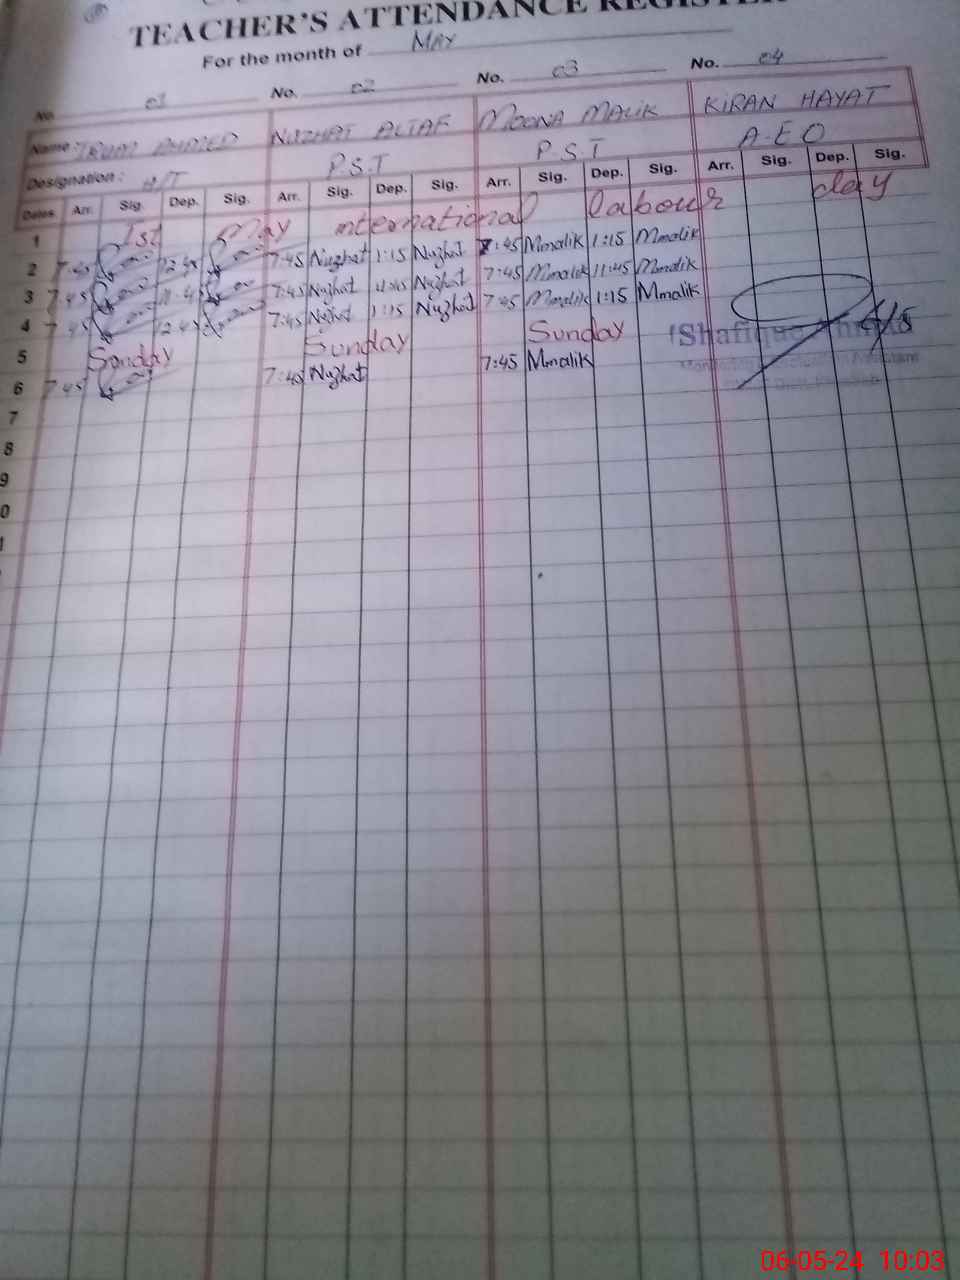 TEACHER'S ATTENDANCE REGISTER
For the month of MAY
No. 01 No. 02 No. 03 No. 04
Name: IRUM AHMED NUZHAT ALTAF MOONA MALIK KIRAN HAYAT
Designation: H/T P.S.T P.S.T A.E.O
Dates Arr. Sig. Dep. Sig. Arr. Sig. Dep. Sig. Arr. Sig. Dep. Sig. Arr. Sig. Dep. Sig.
1 1st May international labour day
2 7:45 7:45 Nuzhat 1:15 Nuzhat 7:45 Mmalik 1:15 Mmalik
3 7:45 7:45 Nuzhat 11:45 Nuzhat 7:45 Mmalik 11:45 Mmalik
4 7:45 7:45 Nuzhat 1:15 Nuzhat 7:45 Mmalik 1:15 Mmalik
5 Sunday Sunday Sunday
6 7:45 7:40 Nuzhat 7:45 Mmalik
7
8
9
0
06-05-24 10:03